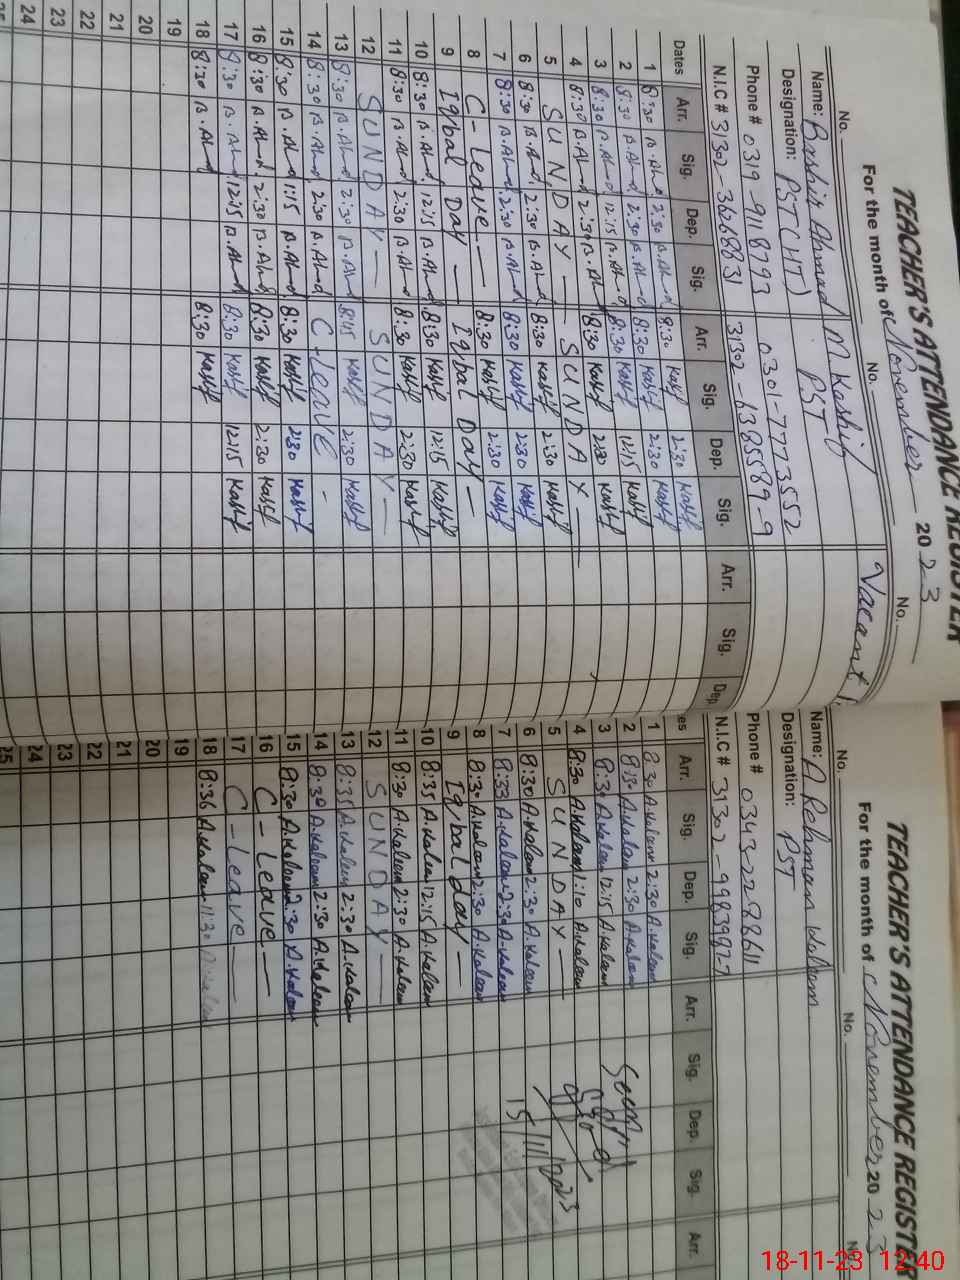 TEACHER'S ATTENDANCE REGISTER
For the month of November 2023
No. No. No.
Name: Bashir Ahmad M Kashif Vacant
Designation: PST (HT) PST
Phone # 0319-9118793 0301-7773552
N.I.C # 31302-3626883-1 31302-6385589-9
Dates Arr. Sig. Dep. Sig. Arr. Sig. Dep. Sig. Arr. Sig. Dep.
1 8:30 B.Ahmd 2:30 B.Ahmd 8:30 Kashif 2:30 Kashif
2 8:30 B.Ahmd 2:30 B.Ahmd 8:30 Kashif 2:30 Kashif
3 8:30 B.Ahmd 12:15 B.Ahmd 8:30 Kashif 12:15 Kashif
4 8:30 B.Ahmd 2:30 B.Ahmd 8:30 Kashif 2:30 Kashif
5 SUNDAY — SUNDAY —
6 8:30 B.Ahmd 2:30 B.Ahmd 8:30 Kashif 2:30 Kashif
7 8:30 B.Ahmd 2:30 B.Ahmd 8:30 Kashif 2:30 Kashif
8 C-Leave — 8:30 Kashif 2:30 Kashif
9 Iqbal Day — Iqbal Day —
10 8:30 B.Ahmd 12:15 B.Ahmd 8:30 Kashif 12:15 Kashif
11 8:30 B.Ahmd 2:30 B.Ahmd 8:30 Kashif 2:30 Kashif
12 SUNDAY — SUNDAY —
13 8:30 B.Ahmd 2:30 B.Ahmd 8:45 Kashif 2:30 Kashif
14 8:30 B.Ahmd 2:30 B.Ahmd C-Leave -
15 8:30 B.Ahmd 1:15 B.Ahmd 8:30 Kashif 2:30 Kashif
16 8:30 B.Ahmd 2:30 B.Ahmd 8:30 Kashif 2:30 Kashif
17 8:30 B.Ahmd 12:15 B.Ahmd 8:30 Kashif 12:15 Kashif
18 8:30 B.Ahmd 8:30 Kashif
19
20
21
22
23
24
25
TEACHER'S ATTENDANCE REGISTER
For the month of November 2023
No. No. No.
Name: A Rehman Kaleem
Designation: PST
Phone # 0343-2288611
N.I.C # 31302-9983992-7
es Arr. Sig. Dep. Sig. Arr. Sig. Dep. Sig. Arr.
1 8:30 A.Kaleem 2:30 A.Kaleem
2 8:30 A.Kaleem 2:30 A.Kaleem
3 8:30 A.Kaleem 12:15 A.Kaleem
4 8:30 A.Kaleem 1:10 A.Kaleem
5 SUNDAY —
6 8:30 A.Kaleem 2:30 A.Kaleem
7 8:33 A.Kaleem 2:30 A.Kaleem
8 8:30 A.Kaleem 2:30 A.Kaleem
9 Iqbal day —
10 8:35 A.Kaleem 12:15 A.Kaleem
11 8:30 A.Kaleem 2:30 A.Kaleem
12 SUNDAY —
13 8:35 A.Kaleem 2:30 A.Kaleem
14 8:30 A.Kaleem 2:30 A.Kaleem
15 8:30 A.Kaleem 2:30 A.Kaleem
16 C-Leave —
17 C-Leave —
18 8:36 A.Kaleem 11:30 A.Kaleem
19
20
21
22
23
24
25
Seen
15/11/2023
18-11-23 12:40